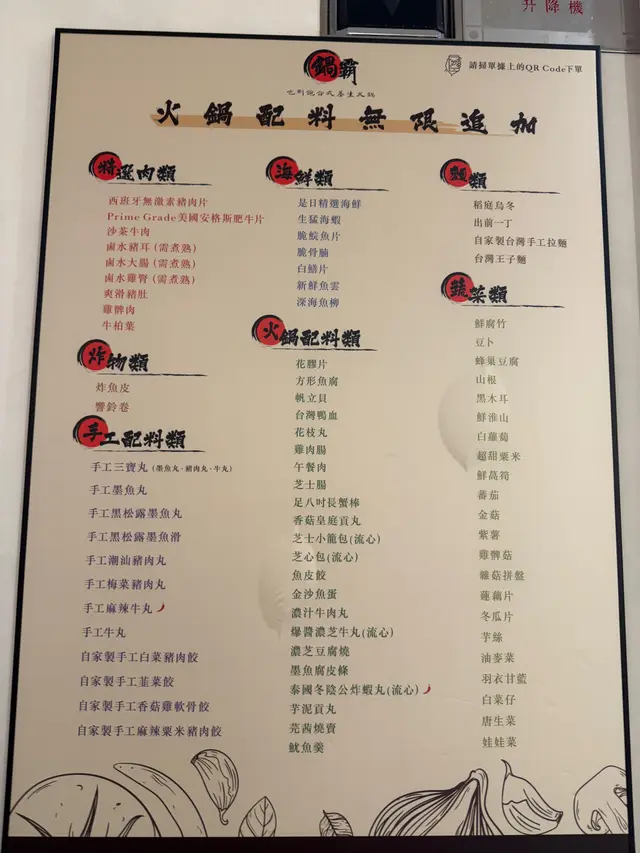 升降機
鍋霸
請掃單據上的QR Code下單
火鍋配料無限追加
特選肉類
西班牙無激素豬肉片
Prime Grade美國安格斯肥牛片
沙茶牛肉
鹵水豬耳(需煮熟)
鹵水大腸(需煮熟)
鹵水雞腎(需煮熟)
爽滑豬肚
雞髀肉
牛柏葉
炸物類
炸魚皮
響鈴卷
手工配料類
手工三寶丸(墨魚丸、豬肉丸、牛丸)
手工墨魚丸
手工黑松露墨魚丸
手工黑松露墨魚滑
手工潮汕豬肉丸
手工梅菜豬肉丸
手工麻辣牛丸
手工牛丸
自家製手工白菜豬肉餃
自家製手工韮菜餃
自家製手工香菇雞軟骨餃
自家製手工麻辣粟米豬肉餃
海鮮類
是日精選海鮮
生猛海蝦
脆鯇魚片
脆骨腩
白鱔片
新鮮魚雲
深海魚柳
火鍋配料類
花膠片
方形魚腐
帆立貝
台灣鴨血
花枝丸
雞肉腸
午餐肉
芝士腸
足八吋長蟹棒
香菇皇庭貢丸
芝士小籠包(流心)
芝心包(流心)
魚皮餃
金沙魚蛋
濃汁牛肉丸
爆醬濃芝牛丸(流心)
濃芝豆腐燒
墨魚腐皮條
泰國冬陰公炸蝦丸(流心)
芋泥貢丸
芫茜燒賣
魷魚羹
麵類
稻庭烏冬
出前一丁
自家製台灣手工拉麵
台灣王子麵
蔬菜類
鮮腐竹
豆卜
蜂巢豆腐
山根
黑木耳
鮮淮山
白蘿蔔
超甜粟米
鮮萵筍
蕃茄
金菇
紫薯
雞髀菇
雜菇拼盤
蓮藕片
冬瓜片
芋絲
油麥菜
羽衣甘藍
白菜仔
唐生菜
娃娃菜